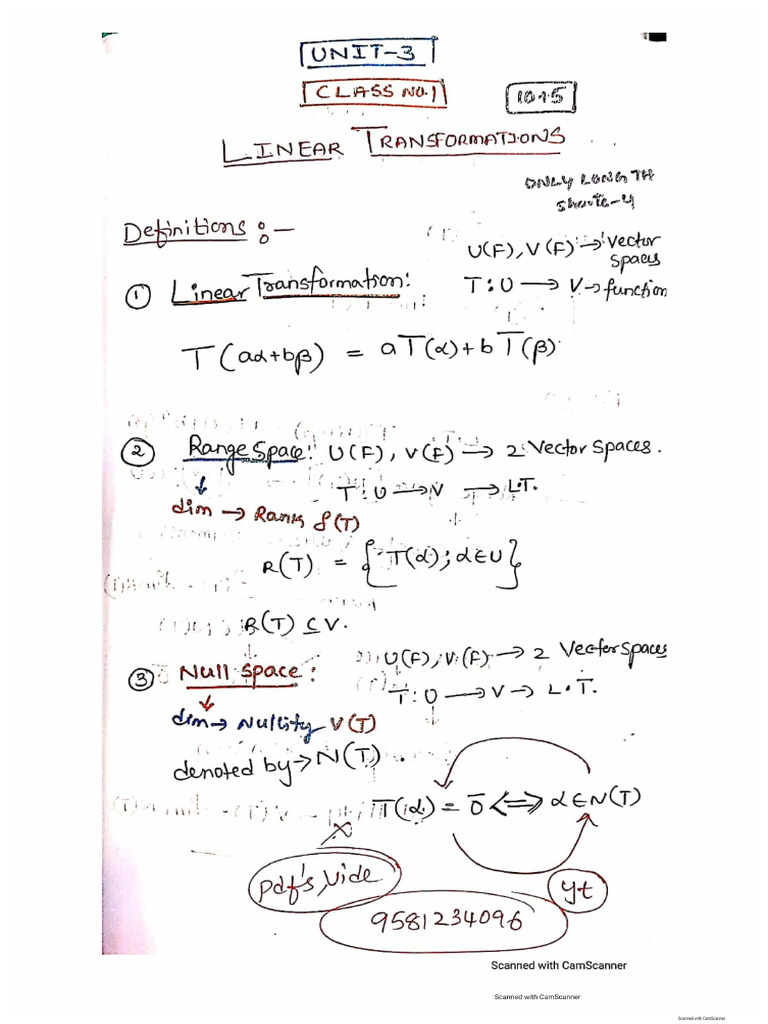 UNIT-3
CLASS NO.1
LINEAR TRANSFORMATIONS
ONLY
Definitions :-
U(F), V(F) → Vector Spaces
① Linear Transformation:
T : U → V → function
T(aα+bβ) = aT(α)+bT(β)
② Range Space: U(F), V(F) → 2 Vector Spaces.
↓ T : U → V → L.T.
dim → Rank ρ(T)
R(T) = {T(α); α∈U}
R(T) ⊆ V.
③ Null space: U(F), V(F) → 2 Vector Spaces
↓ T : U → V → L.T.
dim → Nullity ν(T)
denoted by → N(T).
T(α) = 0̄ ⟺ α∈N(T)
Pdf's, Vide
yt
9581234096
Scanned with CamScanner
Scanned with CamScanner
Scanned with CamScanner